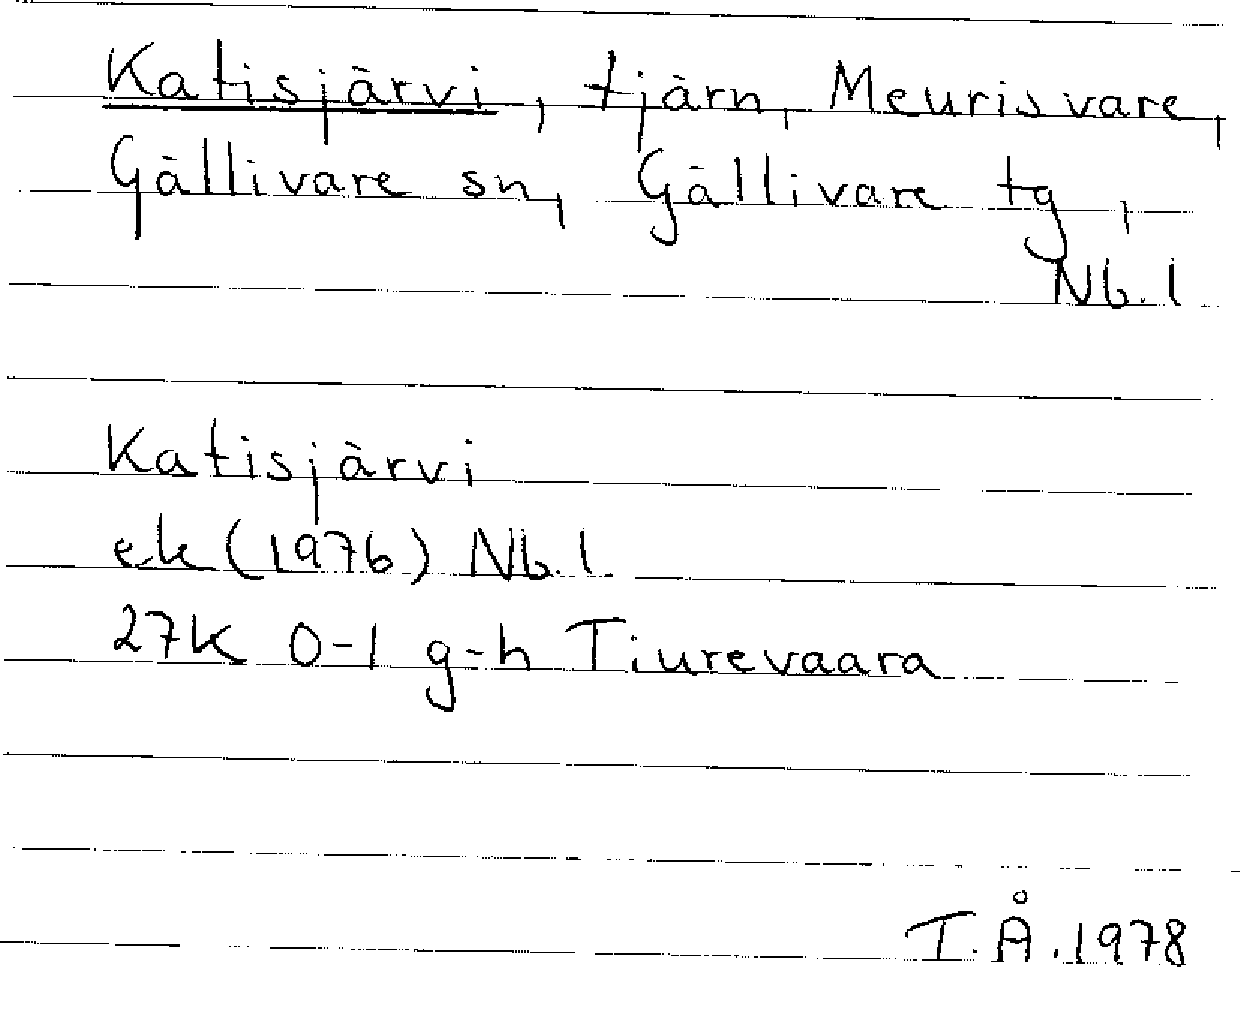 Katisjärvi, tjärn, Meurisvare,
Gällivare sn, Gällivare tg,
Nb. l
Katisjärvi
ek (1976) Nb. l
27K 0-1 g-h Tiurevaara
T.Å. 1978